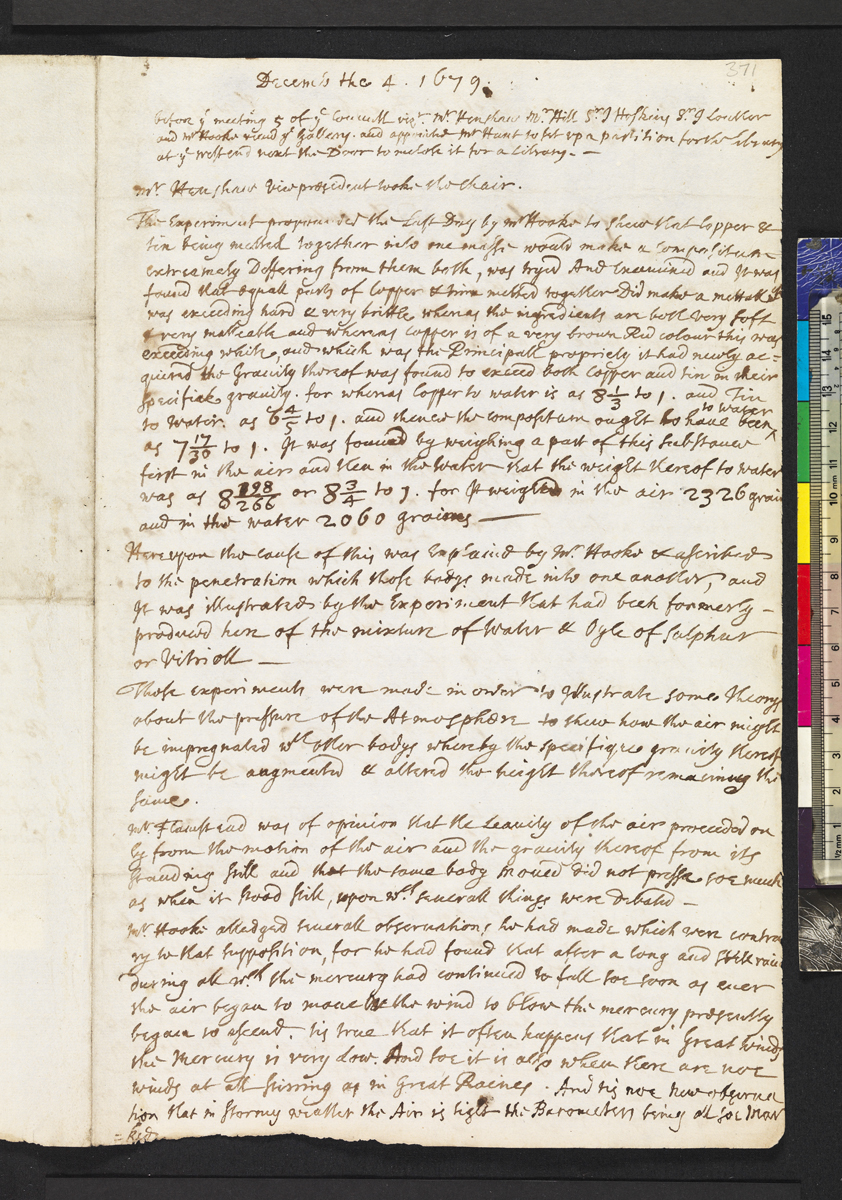 371
Decemb the 4. 1679.
before ye meeting 5 of ye Councill vizt. Mr. Henshaw Mr. Hill Sr. J Hoskins Sr. J
and Mr Hooke viewd ye Gallery. and appointed Mr Hunt to set up a partition for the Library
at ye west end next the Door to inclose it for a Library. —
Mr. Henshaw Vice president tooke the chair.
The Experiment propounded the Last Day by mr Hooke to shew that Copper &
tin being melted together into one masse would make a compositum =
extreamely Differing from them both, was tryed And Examined and It was
found that equall parts of Copper & tinn melted together Did make a mettall yt
was exceeding hard & very brittle whereas the ingredients are both very soft
& very malleable and whereas Copper is of a very brown Red colour this was
exceeding white, and which was the Principall propriety it had newly ac=
quired the Gravity thereof was found to exceed both Copper and tin in their
specifick gravity. for whereas Copper to water is as 8 1/3 to 1. and Tin
to water. as 6 4/5 to 1. and thence the compositum ought to have been to water
as 7 17/30 to 1. It was found by weighing a part of this Substance
first in the air and then in the water that the weight thereof to water
was as 8 198/266 or 8 3/4 to 1. for It weighed in the air 2326 grain
and in the water 2060 graines —
Hereupon the cause of this was Explaind by Mr. Hooke & ascribed
to the penetration which those bodys made into one another, and
It was illustrated by the Experiment that had been formerly -
produced here of the mixture of water & Oyle of Sulphur
or Vitrioll —
Those experiments were made in order to Illustrate some theorys
about the pressure of the Atmosphære to shew how the air might
be impregnated wth other bodys whereby the specifique gravity thereof
might be augmented & altered the height thereof remaining the
same.
Mr. Flamstead was of opinion that the Leavity of the air proceeded on
ly from the motion of the air and the gravity thereof from its
standing still and that the same body moved did not presse soe much
as when it stood still, upon wch. severall things were debated -
Mr. Hooke alledged severall observations he had made which were contra
ry to that supposition, for he had found that after a long and still rain
during all wch. the mercury had continued to fall soe soon as ever
the air began to move & the wind to blow the mercury presently
began to ascend. tis true that it often happens that in Great winds
the Mercury is very Low. And soe it is also when there are noe
winds at all stirring as in Great Raines. And tis noe New observa
tion that in stormy weather the Air is light the Barometers being all soe mar
=ked